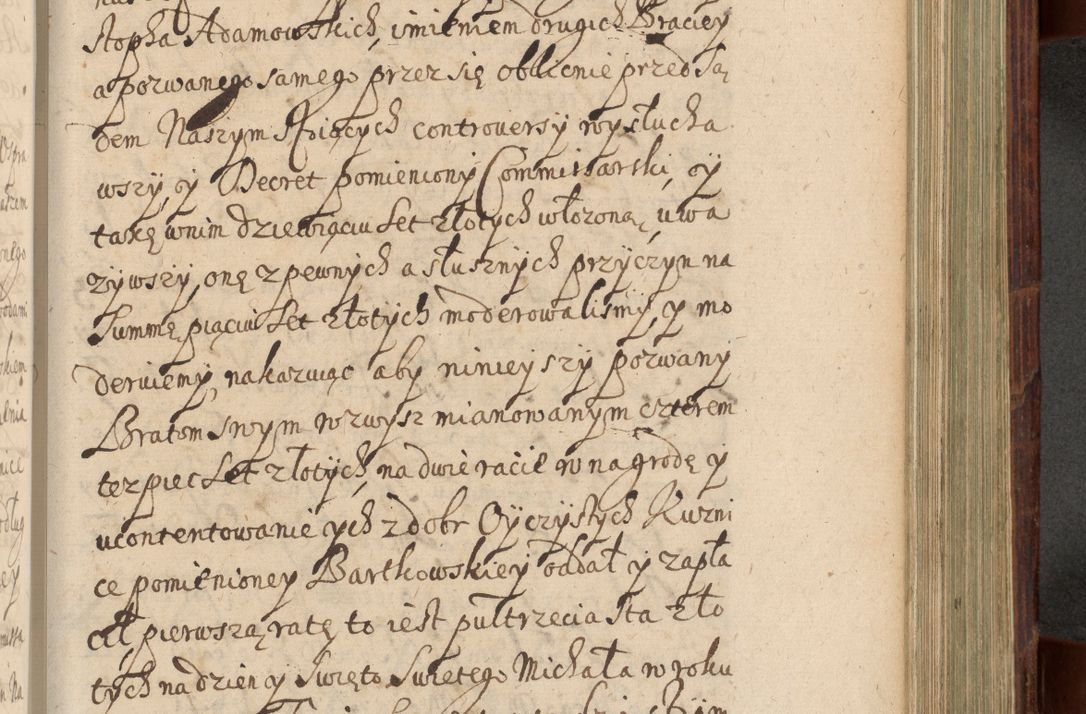 stopha Adamowskich, imieniem drugich Braciey
a pozwanego samego przez się oblicznie przed Są
dem Naszym stoiących controversy wysłucha
wszy, y Decret pomieniony Commissarski, y
taxę wnim dziewiąciu set złotych włożoną, uwa
żywszy, onę z pewnych a słusznych przyczyn na
summę piąciu set złotych moderowalismy, y mo
deruiemy, nakazuiąc aby ninieyszy pozwany
Bratom swym wzwysz mianowanym czterem
terz piec set złotych, na dwie racie w nagrodę y
ucontentowanie ych z dobr Oyczystych Kuzni
ce pomienioney Bartkowskiey oddał y zapła
cił, pierwszą ratę to iest pułtrzecia sta zło
tych na dzien y swięto Swietego Michała w roku